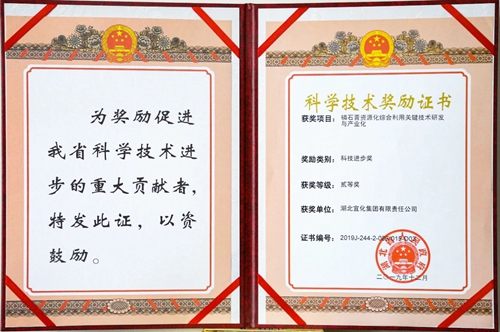 为奖励促进
我省科学技术进
步的重大贡献者，
特发此证，以资
鼓励。
科学技术奖励证书
获奖项目： 磷石膏资源化综合利用关键技术研发
与产业化
奖励类别： 科技进步奖
获奖等级： 贰等奖
获奖单位： 湖北宜化集团有限责任公司
证书编号：
湖北省人民政府
二〇一九年十二月